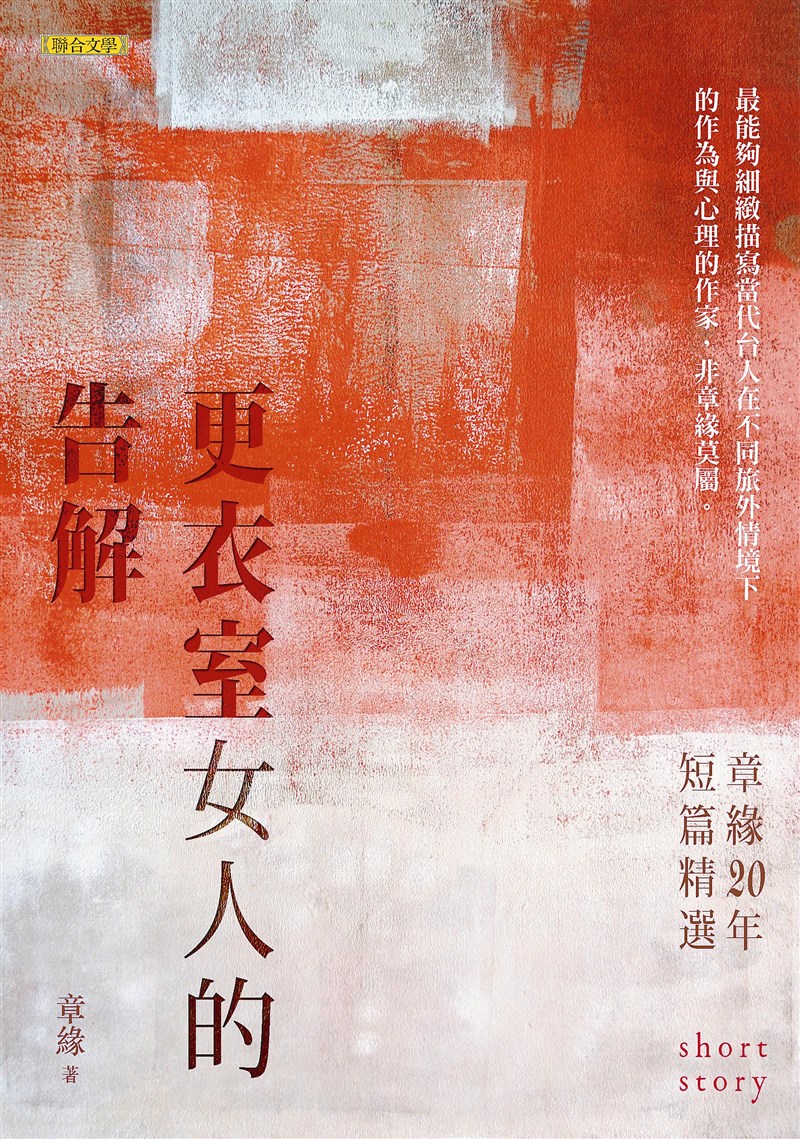 聯合文學
最能夠細緻描寫當代台人在不同旅外情境下
的作為與心理的作家，非章緣莫屬。
更衣室女人的
告解
章緣20年
短篇精選
short
story
章緣 著